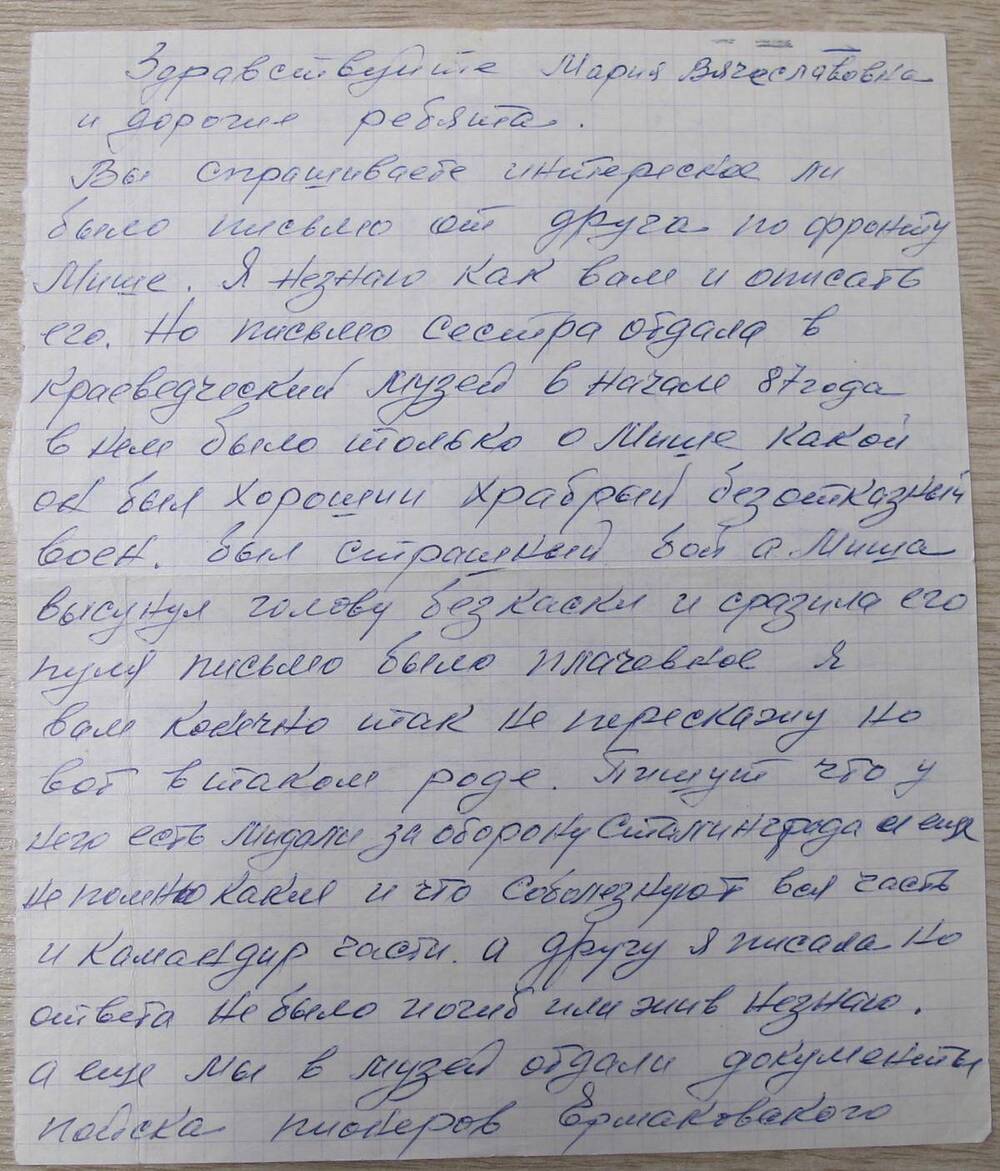 Здравствуйте Мария Вячеславовна
и дорогие ребята.
Вы спрашиваете интереское ли
было письмо от друга по фронту
Мише. Я незнаю как вам и описать
его. Но письмо сестра отдала в
краеведческий музей в начале 87 года
в нем было только о Мише какой
он был хороший храбрый безотказный
воен. был страшный бой а Миша
высунул голову без каски и сразила его
пуля письмо было плачевное я
вам конечно так не перескажу но
вот в таком роде. Пишут что у
него есть мидали за оборону Сталинграда и еще
не помню какие и что Соболезнуют вся часть
и Камандир части. а другу я писала но
ответа не было погиб или жив незнаю.
а еще мы в музей отдали документы
поиска пионеров Ермаковского